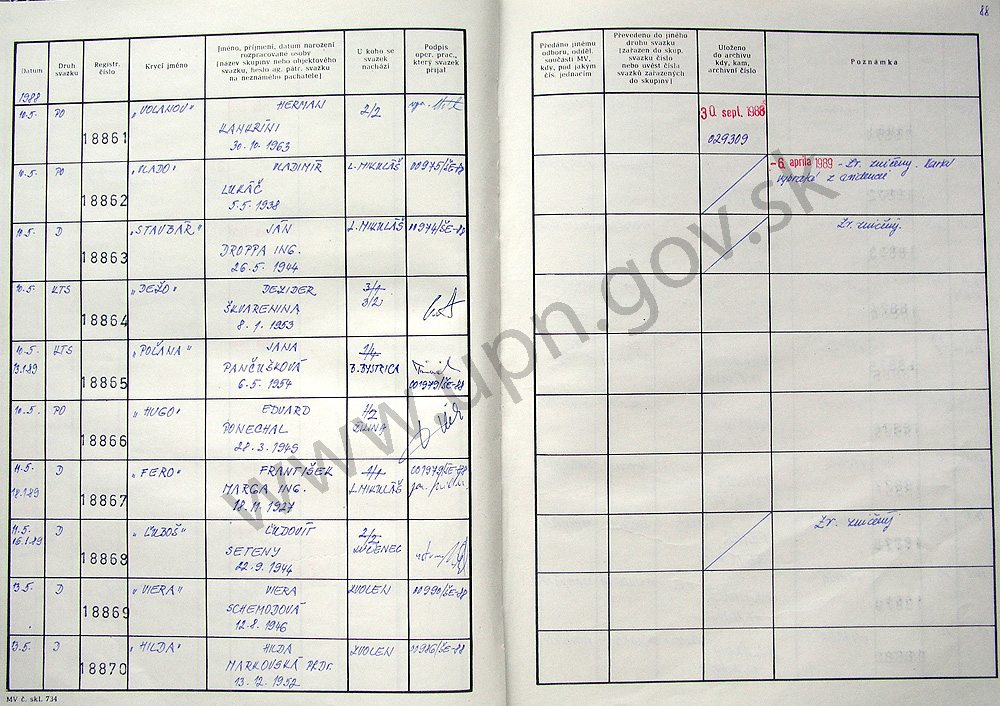 88
Datum
Druh svazku
Registr. číslo
Krycí jméno
Jméno, příjmení, datum narození
rozpracované osoby
[název skupiny nebo objektového
svazku, heslo ag. pátr. svazku
na neznámého pachatele]
U koho se
svazek
nachází
Podpis
oper. prac.,
který svazek
přijal
Předáno jinému
odboru, odděl.
součásti MV,
kdy, pod jakým
čís. jednacím
Převedeno do jiného
druhu svazku
[zařazen do skup.
svazku číslo
nebo uvést čísla
svazků zařazených
do skupiny]
Uloženo
do archivu
kdy, kam,
archivní číslo
Poznámka
1988
10.5. PO 18861 „VOLANOV" HERMAN 2/2
KANKRÍNI
30.10.1963
30. sept. 1988
029309
10.5. PO 18862 „VLADO" VLADIMÍR L. MIKULÁŠ 00975/ŠE-88
LUKÁČ
5.5.1938
-6. apríla 1989 - Zv. zničený.
z evidencie
10.5. D 18863 „STAVBÁR" JÁN L. MIKULÁŠ 00974/ŠE-88
DROPPA ING.
26.5.1944
Zv. zničený.
10.5. KTS 18864 „DEŽO" DEZIDER 3/1
ŠKVARENINA 3/2
8.1.1953
10.5. KTS 18865 „POĽANA" JANA 1/4
PANČUŠKOVÁ B. BYSTRICA
6.5.1954 001979/ŠE-88
10.5. PO 18866 „HUGO" EDUARD 1/2
PONECHAL ŽILINA
28.3.1945
11.5. D 18867 „FERO" FRANTIŠEK 001979/ŠE-88
18.1.89 MARGA ING. L. MIKULÁŠ
18.11.1927
11.5. D 18868 „ĽUBOŠ" ĽUDOVÍT 2/2
16.1.89 SETENY LUČENEC
22.9.1944
Zv. zničený
13.5. D 18869 „VIERA" VIERA ZVOLEN 00990/ŠE-88
SCHEMODOVÁ
12.8.1946
13.5. D 18870 „HILDA" HILDA ZVOLEN 00986/ŠE-88
MARKOVSKÁ
13.12.1952
MV č. skl. 734
www.upn.gov.sk